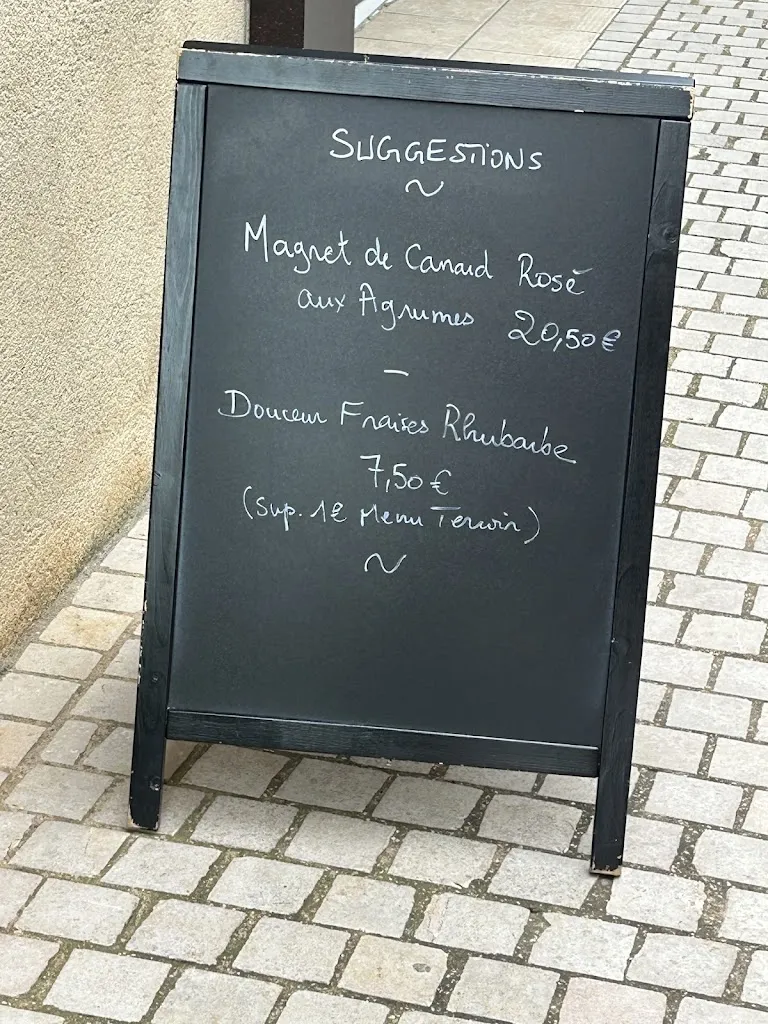 SUGGESTIONS
~
Magret de Canard Rosé
aux Agrumes 20,50€
—
Douceur Fraises Rhubarbe
7,50€
(Sup. 1€ Menu Terroir)
~